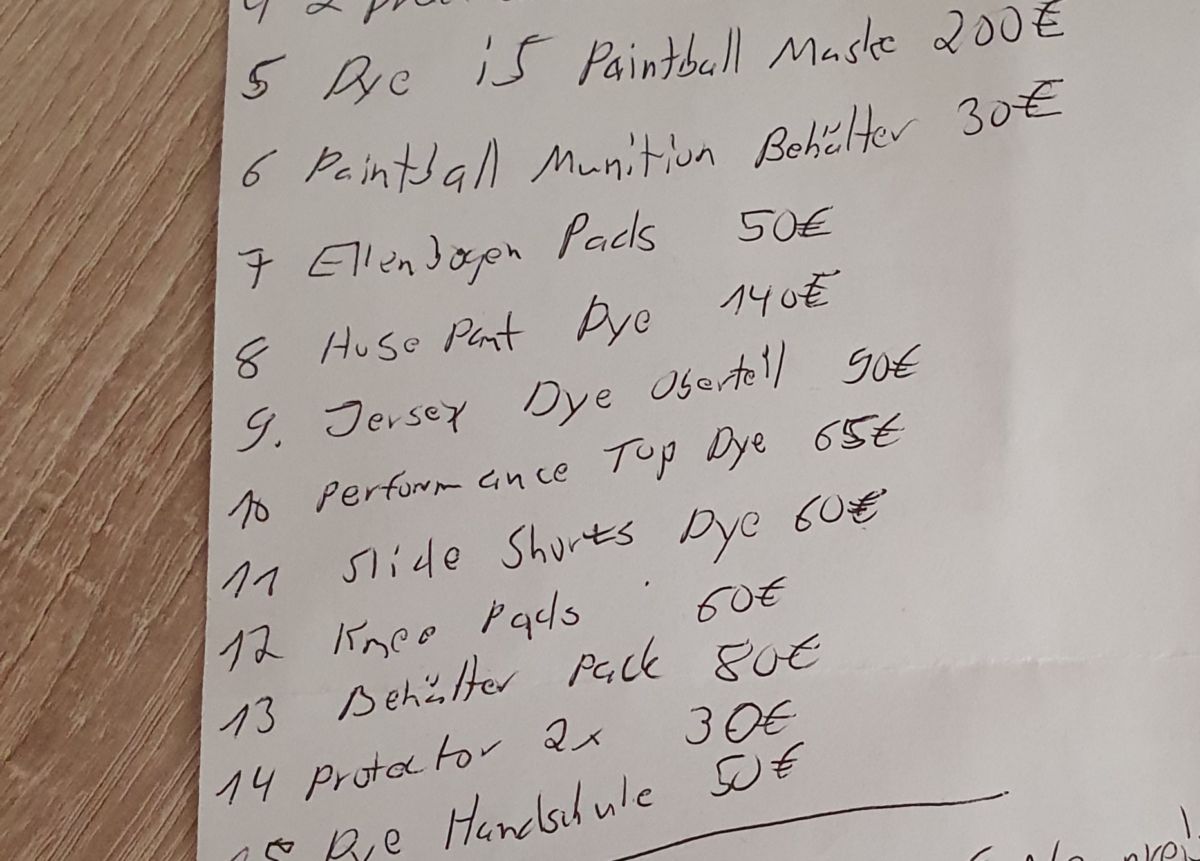 4 2
5 Dye i5 Paintball Maske 200€
6 Paintball Munition Behälter 30€
7 Ellenbogen Pads 50€
8 Hose Pant Dye 140€
9. Jersey Dye Oberteil 90€
10 Performance Top Dye 65€
11 Slide Shorts Dye 60€
12 Knee Pads 60€
13 Behälter Pack 80€
14 Protector 2x 30€
15 Dye Handschule 50€